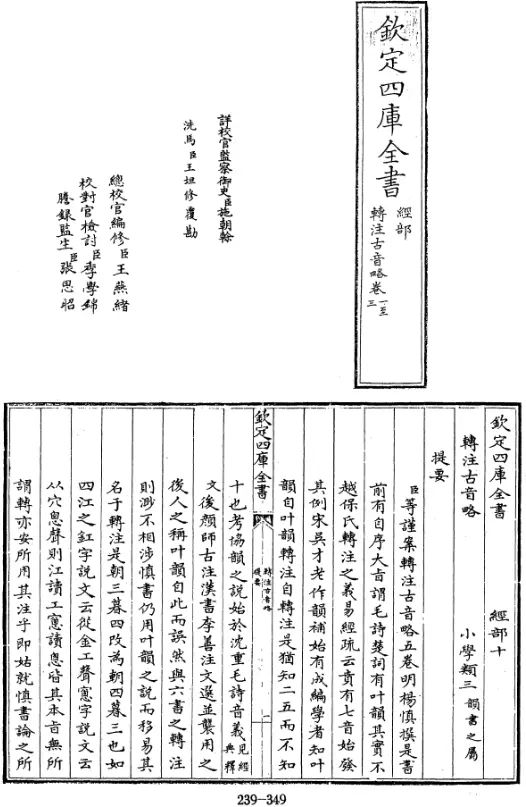 欽定四庫全書
經部
轉注古音略卷一至三
詳校官監察御史臣施朝榦
洗馬臣王坦修覆勘
總校官編修臣王燕緒
校對官檢討臣李學錦
謄錄監生臣張思昭
欽定四庫全書
經部十
轉注古音略
小學類三韻書之屬
提要
臣等謹案轉注古音略五卷明楊慎撰是書
前有自序大旨謂毛詩楚詞有叶韻其實不
越保氏轉注之義易經疏云賁有七音始發
其例宋吳才老作韻補始有成編學者知叶
韻自叶韻轉注自轉注是猶知二五而不知
欽定四庫全書
轉注古音略
提要
一
十也考協韻之說始於沈重毛詩音義見經典釋
文後顏師古注漢書李善注文選並襲用之
後人之稱叶韻自此而誤然與六書之轉注
則渺不相涉慎書仍用叶韻之說而移易其
名于轉注是朝三暮四改為朝四暮三也如
四江之釭字說文云從金工聲窻字說文云
从穴悤聲則江讀工窻讀悤皆其本音無所
謂轉亦安所用其注乎即姑就慎書論之所
239-349